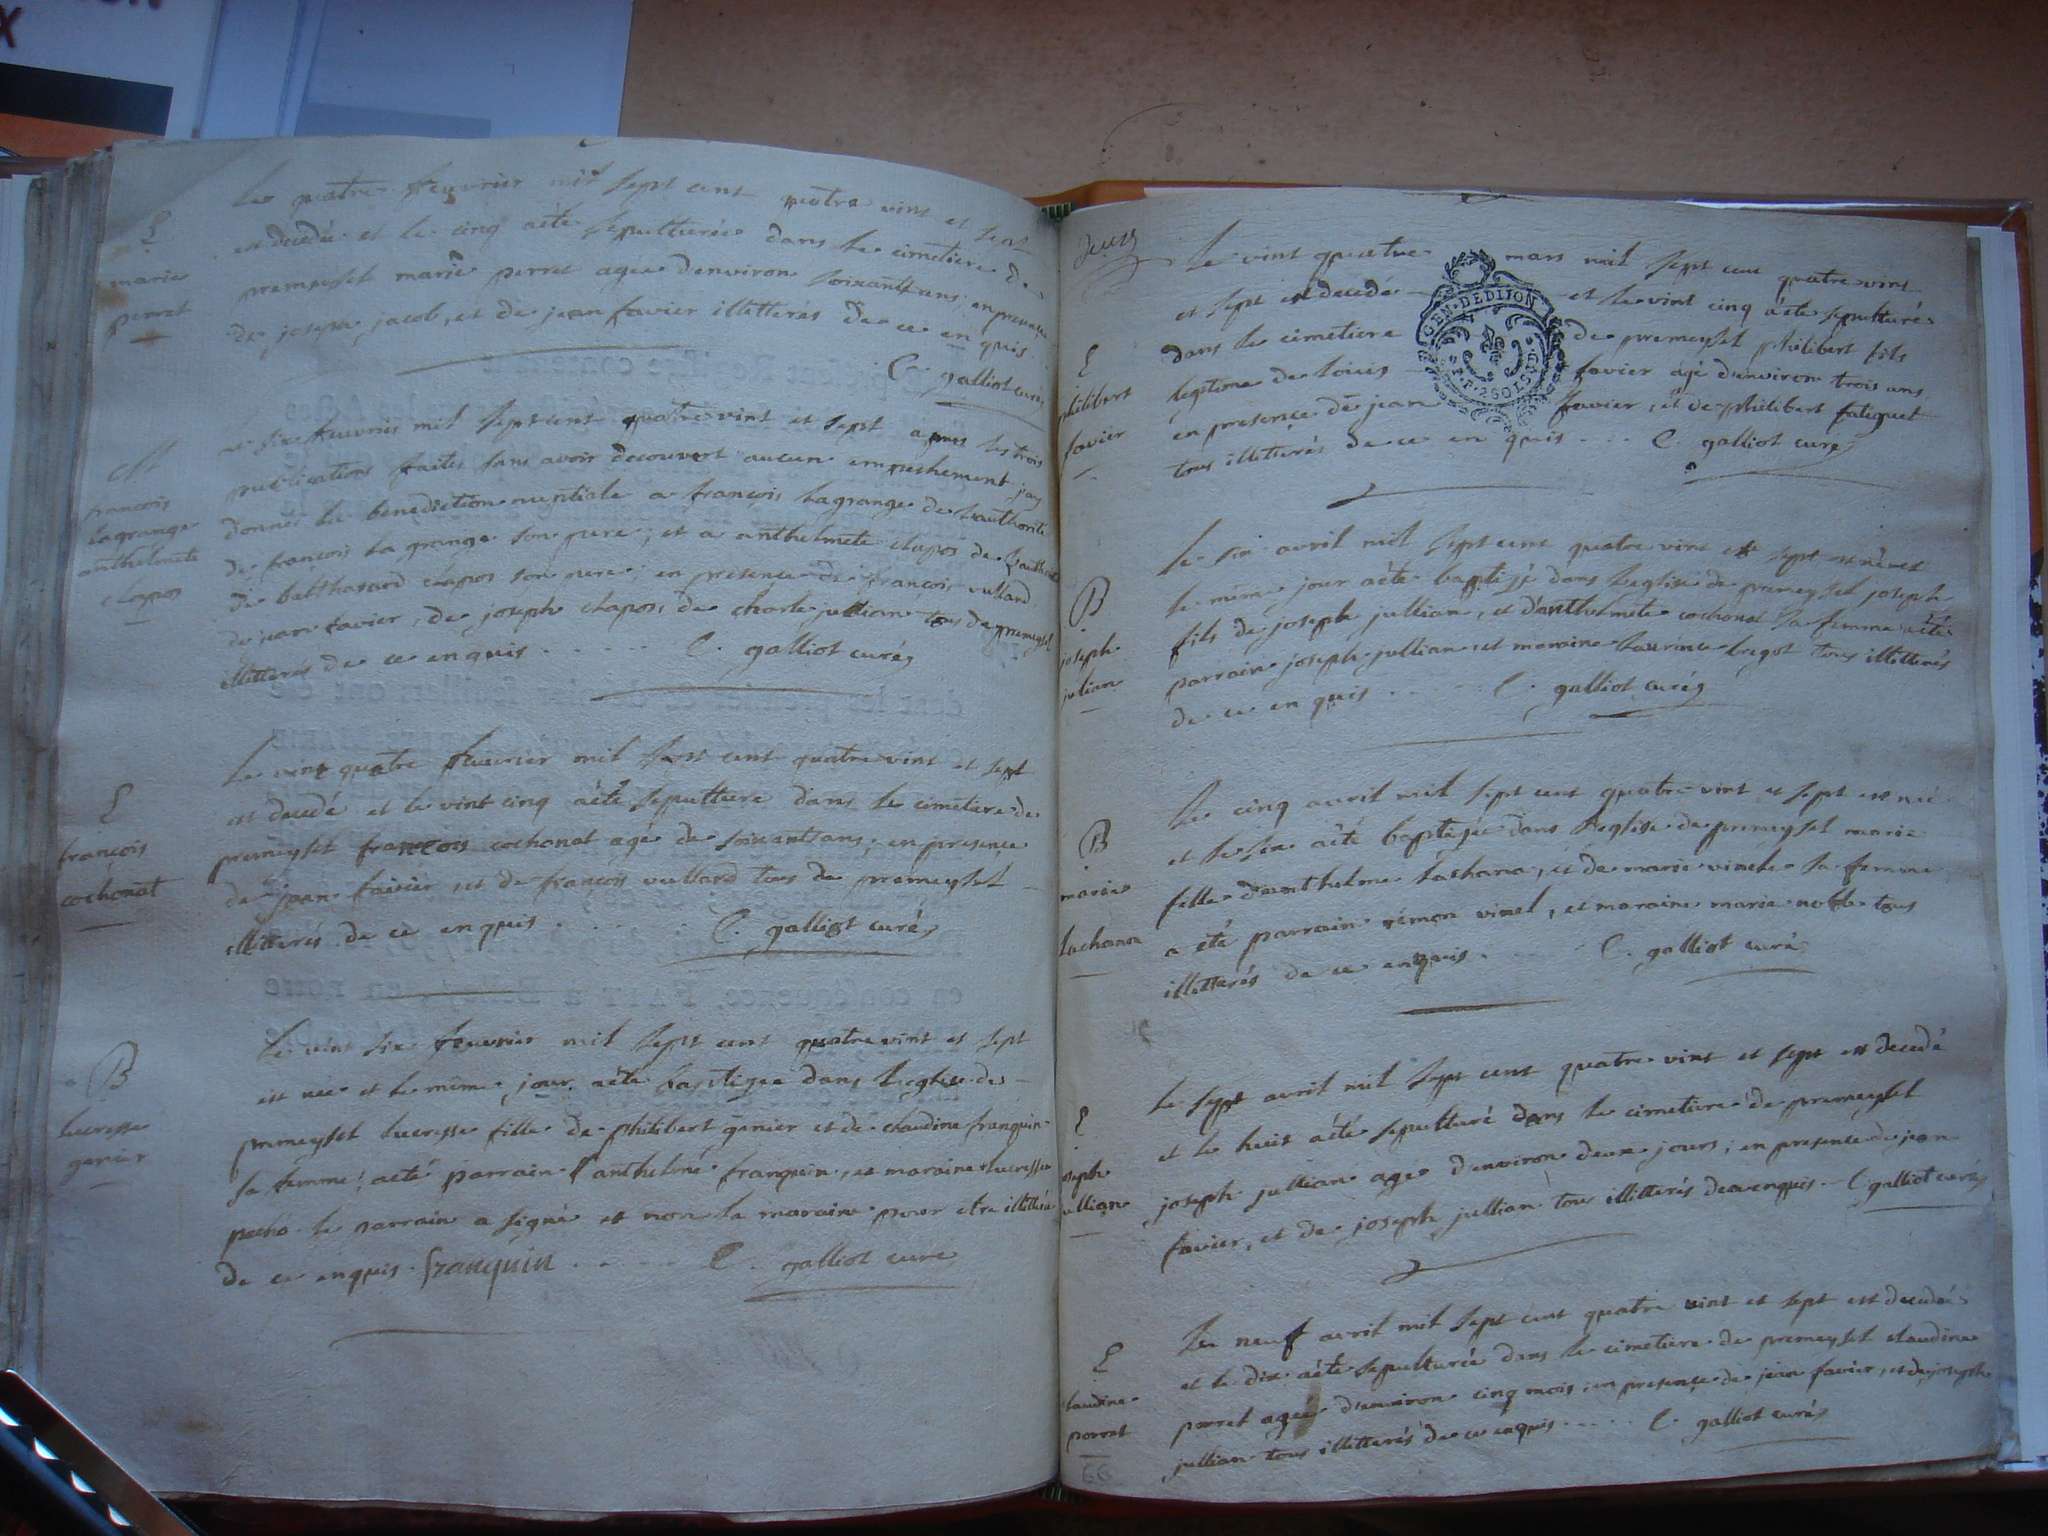 S
marie
perret
Le quatre feuvrier mil sept cent quatre vint et sept
est decedée et le cinq aété sepulturée dans le cimetiere de
premeyset marie perret agée denviron soixant ans, en presence
de joseph jacob, et de jean favier illetteres de ce en quis
C. galliot curé
M
francois
lagrange
anthelmete
chapos
Le six feuvrier mil sept cent quatre vint et sept apres les trois
publications faites sans avoir decouvert aucun empeschement j'ay
donné la benediction nuptiale a françois lagrange de l'authorité
de françois la grange son pere, et a anthelmete chapos de l'authorité
de balthasard chapos son pere, en presence de françois vullard
de jean favier, de joseph chapos, de charle jullian tous de premeysel
illitterés de ce enquis C. galliot curé
S
françois
cochonat
Le vint quatre feuvrier mil sept cent quatre vint et sept
est decedé et le vint cinq aété sepulture dans le cimetiere de
premeyset françois cochonat age de soixant ans, en presence
de jean favier, et de françois vullard tous de premeyset
illitterés de ce enquis C. galliot curé
B
lucresse
genier
Le vint six feuvrier mil sept cent quatre vint et sept
est née et le même jour aété baptizée dans l'eglise de
premeyset lucresse fille de philibert genier et de claudine franquin
sa femme, aété parrain anthelme franquin, et maraine lucresse
pocho le parrain a signé et non la maraine pour etre illittéré
de ce enquis franquin C. galliot curé
deux
S
philibert
favier
Le vint quatre mars mil sept cent quatre vint
et sept est decedé et le vint cinq aété sepulturé
dans le cimetiere de premeyset philibert fils
legitime de loüis favier âgé d'environ trois ans
en presence de jean favier, et de philibert faliquet
tous illitterés de ce en quis C. galliot curé
GEN. DEDIJON
B
joseph
julian
Le six avril mil sept cent quatre vint et sept est né et
le même jour aété baptizé dans l'eglise de premeyset joseph
fils de joseph jullian, et d'anthelmete cochonat sa femme aété
parrain joseph jullian, et maraine laurence tous illitterés
de ce en quis C. galliot curé
B
marie
lachana
Le cinq avril mil sept cent quatre vint et sept est né
et le six aété baptizée dans l'eglise de premeyset marie
fille d'anthelme lachana, et de marie vinel sa femme
a été parrain rémon vinel, et maraine marie noble tous
illitterés de ce enquis C. galliot curé
S
joseph
jullian
Le sept avril mil sept cent quatre vint et sept est decedé
et le huit aété sepulturé dans le cimetiere de premeyset
joseph jullian agé d'environ deux jours, en presence de jean
favier, et de joseph jullian tous illitterés de ce enquis C. galliot curé
S
claudine
perret
Le neuf avril mil sept cent quatre vint et sept est decedée
et le dix aété sepulturée dans le cimetiere de premeyset claudine
perret agée d'environ cinq mois, en presence de jean favier, et de joseph
jullian tous illitterés de ce enquis C. galliot curé
66